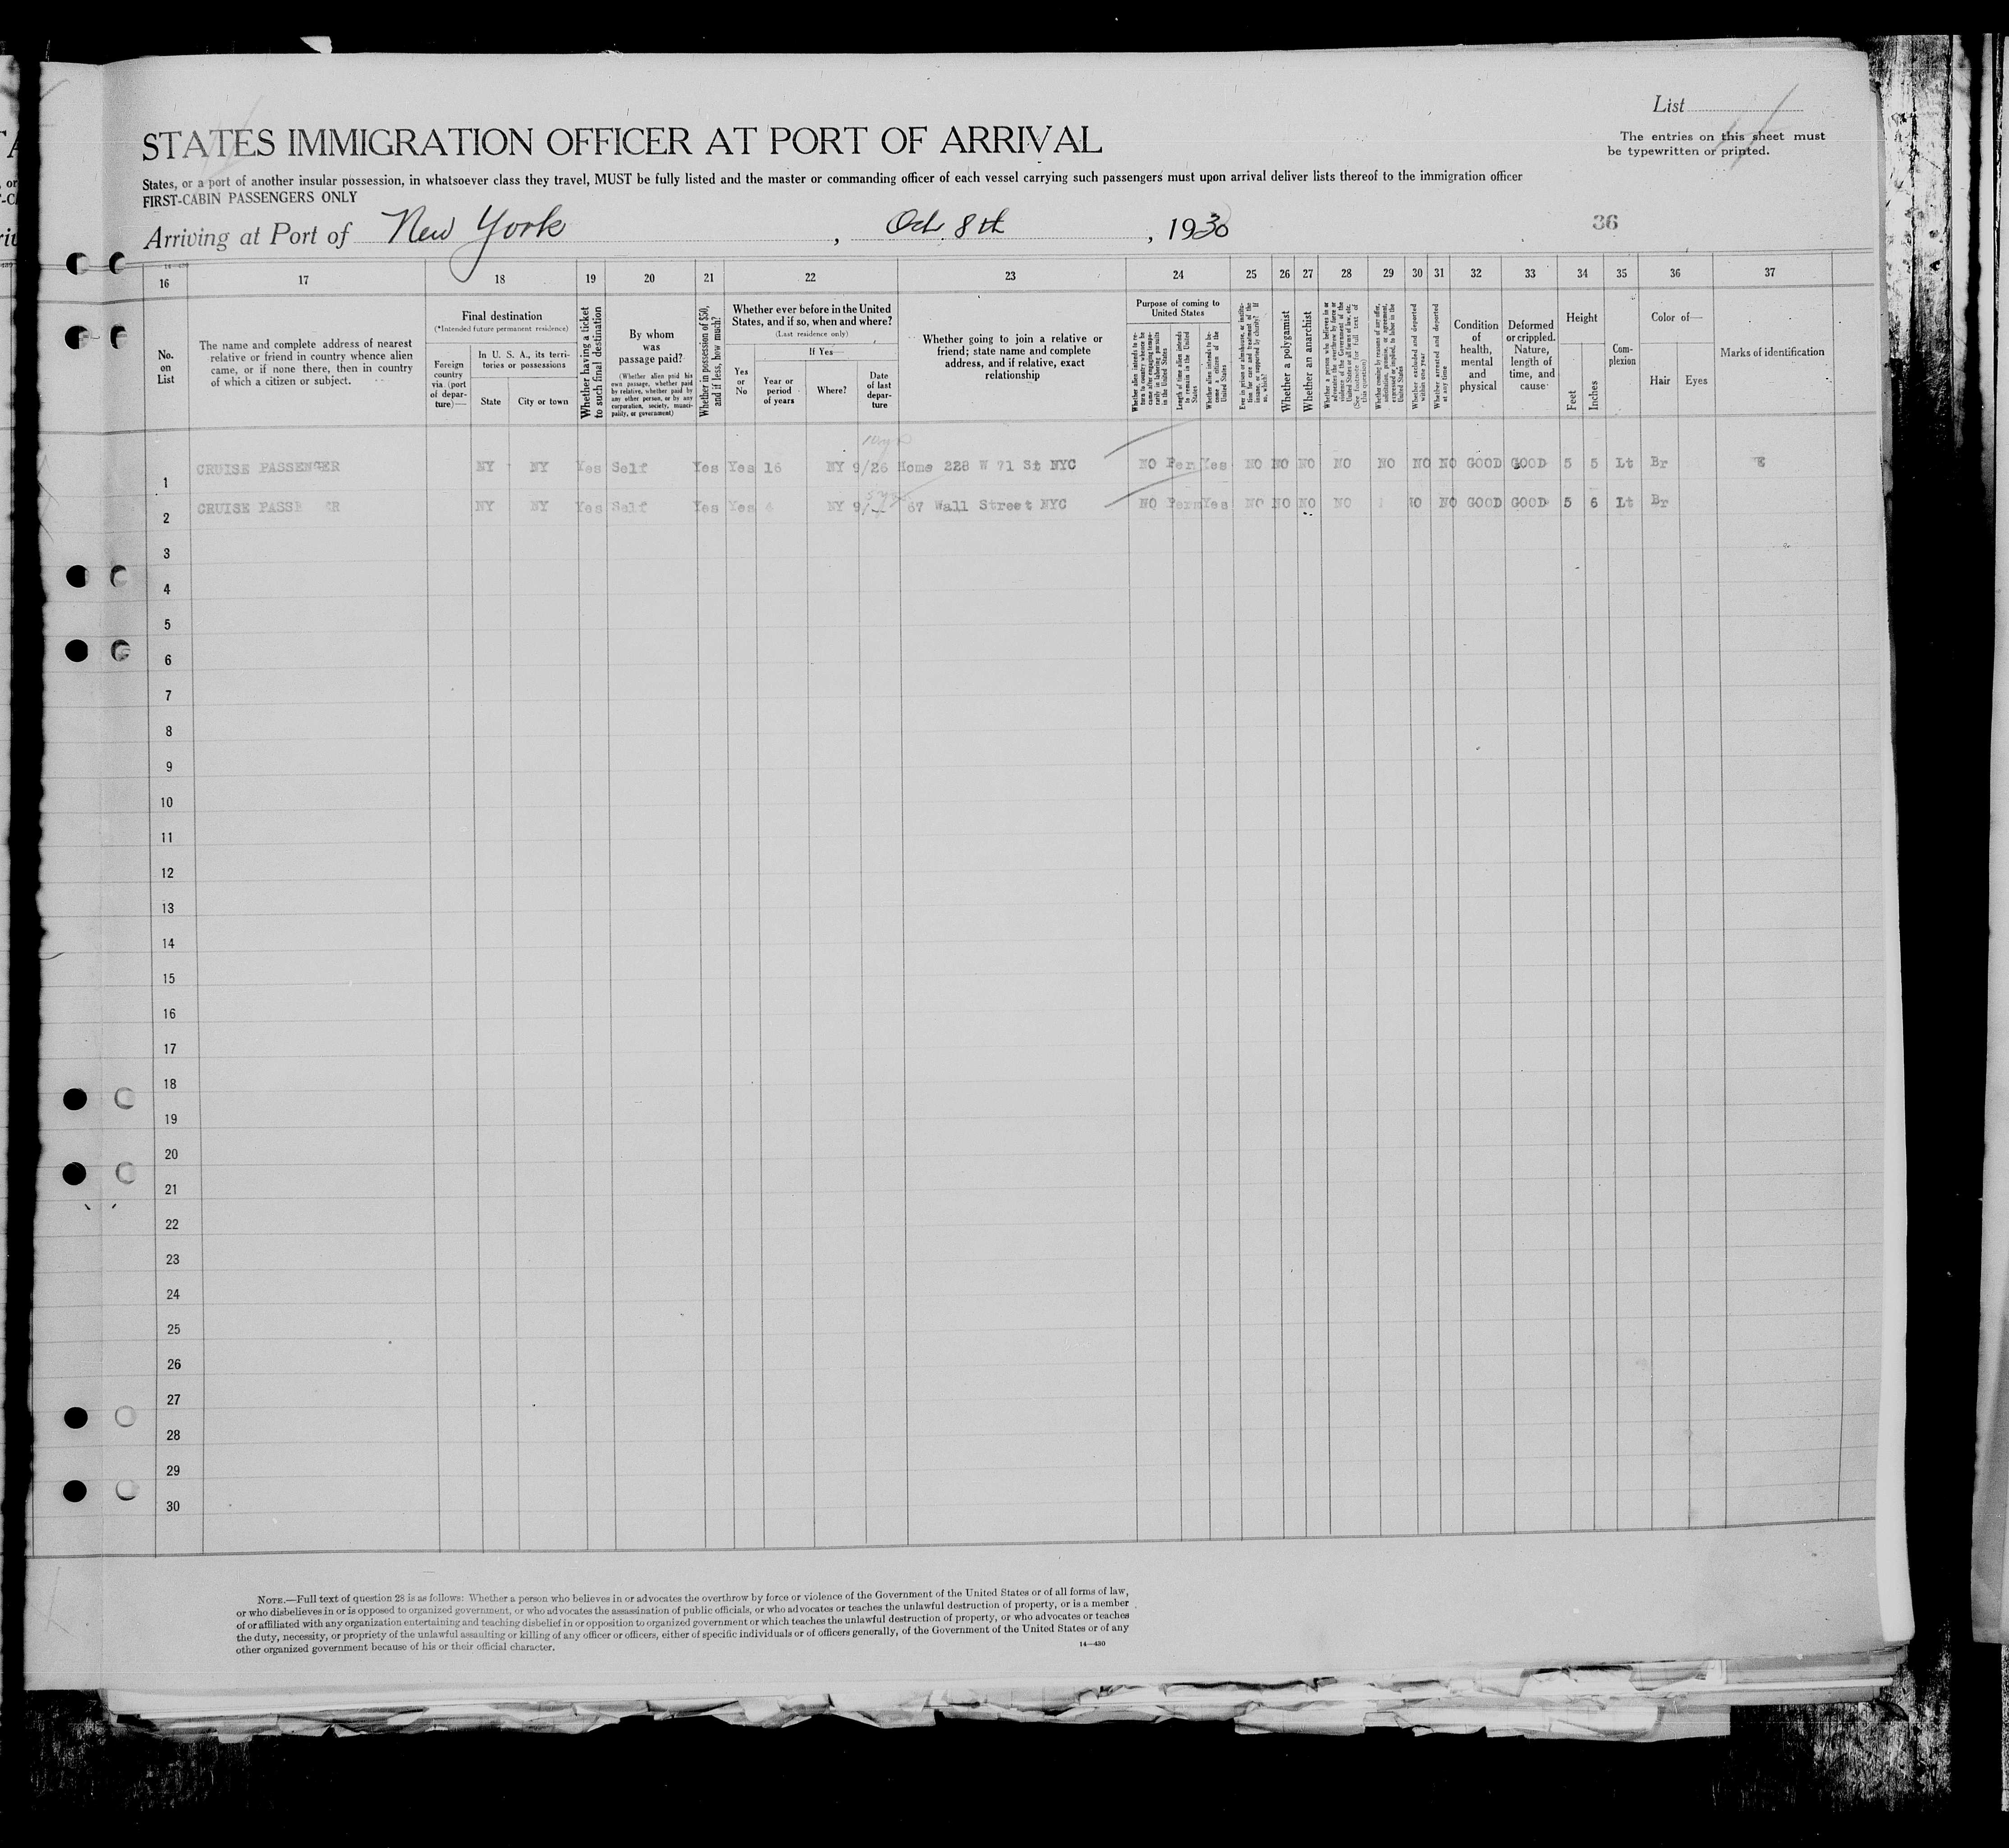 List
The entries on this sheet must
be typewritten or printed.
STATES IMMIGRATION OFFICER AT PORT OF ARRIVAL
States, or a port of another insular possession, in whatsoever class they travel, MUST be fully listed and the master or commanding officer of each vessel carrying such passengers must upon arrival deliver lists thereof to the immigration officer
FIRST-CABIN PASSENGERS ONLY
Arriving at Port of New York, Oct. 8th, 1930
36
16 17 18 19 20 21 22 23 24 25 26 27 28 29 30 31 32 33 34 35 36 37
No. on List
The name and complete address of nearest
relative or friend in country whence alien
came, or if none there, then in country
of which a citizen or subject.
Final destination
(*Intended future permanent residence)
Foreign country via (port of departure)—
In U. S. A., its territories or possessions
State
City or town
Whether having a ticket to such final destination
By whom was passage paid?
(Whether alien paid his own passage, whether paid by relative, whether paid by any other person, or by any corporation, society, municipality, or government)
Whether in possession of $50, and if less, how much?
Whether ever before in the United States, and if so, when and where?
(Last residence only)
Yes or No
If Yes—
Year or period of years
Where?
Date of last departure
Whether going to join a relative or
friend; state name and complete
address, and if relative, exact
relationship
Purpose of coming to United States
Whether alien intends to return to country whence he came after engaging temporarily in laboring pursuits in the United States
Length of time alien intends to remain in the United States
Whether alien intends to become a citizen of the United States
Ever in prison or almshouse, or institution for care and treatment of the insane, or supported by charity? If so, which?
Whether a polygamist
Whether an anarchist
Whether a person who believes in or advocates the overthrow by force or violence of the Government of the United States or all forms of law, etc. (See footnote for full text of this question)
Whether coming by reasons of any offer, solicitation, promise, or agreement, expressed or implied, to labor in the United States
Whether excluded and deported within one year
Whether arrested and deported at any time
Condition of health, mental and physical
Deformed or crippled. Nature, length of time, and cause
Height
Feet
Inches
Complexion
Color of—
Hair
Eyes
Marks of identification
1 CRUISE PASSENGER NY NY Yes Self Yes Yes 16 NY 9/26 Home 228 W 71 St NYC NO Per Yes NO NO NO NO NO NO NO GOOD GOOD 5 5 Lt Br
2 CRUISE NY NY Yes Self Yes Yes NY 67 Wall Street NYC NO Perm Yes NO NO NO NO NO NO GOOD GOOD 5 6 Lt Br
3
4
5
6
7
8
9
10
11
12
13
14
15
16
17
18
19
20
21
22
23
24
25
26
27
28
29
30
NOTE.—Full text of question 28 is as follows: Whether a person who believes in or advocates the overthrow by force or violence of the Government of the United States or of all forms of law,
or who disbelieves in or is opposed to organized government, or who advocates the assassination of public officials, or who advocates or teaches the unlawful destruction of property, or is a member
of or affiliated with any organization entertaining and teaching disbelief in or opposition to organized government or which teaches the unlawful destruction of property, or who advocates or teaches
the duty, necessity, or propriety of the unlawful assaulting or killing of any officer or officers, either of specific individuals or of officers generally, of the Government of the United States or of any
other organized government because of his or their official character.
14—430